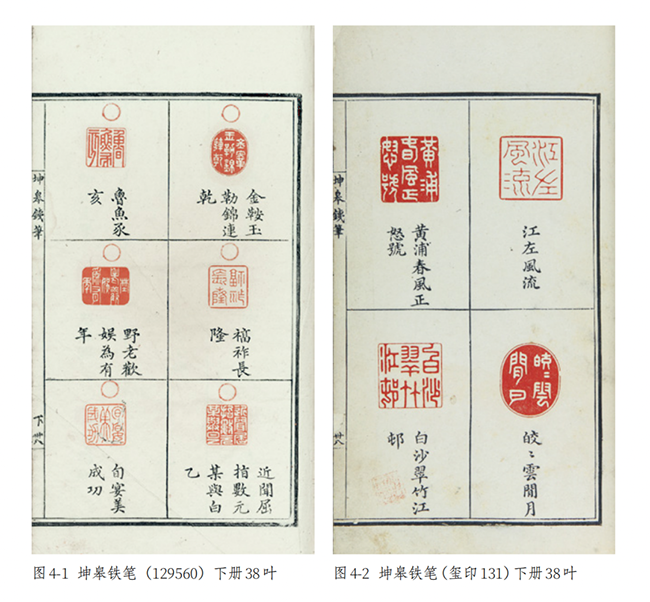 金鞍玉
勒錦連
乾
魯魚豕
亥
福祚長
隆
野老歡
娛為有
年
近聞屈
指數元
某與白
乙
旬宴美
成功
坤皋鐵筆
下卅八
江左風流
皎〻雲間月
黃浦春風正
怒號
白沙翠竹江
邨
坤皋鐵筆
卅八
图4-1 坤皋铁笔（129560）下册38叶
图4-2 坤皋铁笔（玺印131）下册38叶